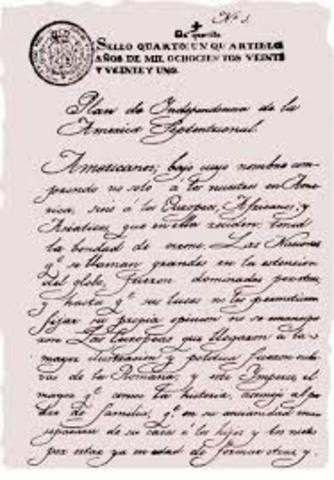 Nº 1.
SELLO QUARTO, UN QUARTILLO,
AÑOS DE MIL OCHOCIENTOS VEINTE
Y VEINTE Y UNO.
Plan de Independencia de la
America Septentrional.
Americanos, bajo cuyo nombre com
prendo no solo á los nacidos en Ame
rica, sino á los Europeos, Africanos, y
Asiaticos, que en ella residen: tened
la bondad de oirme. Las Naciones
q.e se llaman grandes en la extension
del globo, fueron dominadas por otras;
y hasta q.e sus luces no les permitieron
fijar su propia opinion no se emancipa
ron. Las Europeas que llegaron á la
mayor ilustracion y politica fueron escla
vas de la Romana; y este Imperio, el
mayor q.e conoce la historia, asemejó al pa
dre de familias, q.e en su ancianidad mira
separarse de su casa á los hijos y los nietos
por estar ya en edad de formar otras y